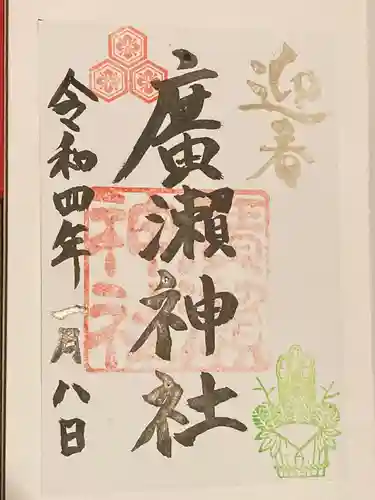 迎春
廣瀨神社
令和四年一月八日